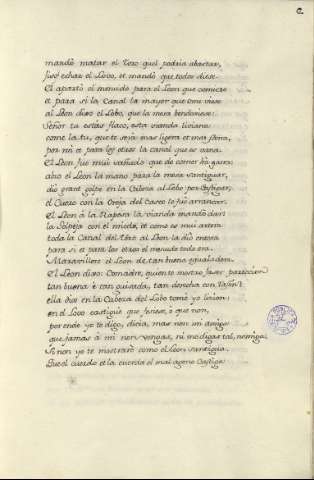 C.
mandò matar el Toro quel podria abastar,
fiso echar el Lobo, et mandò que todos diese.
El apartò el menudo para el Leon que comiese
et para si la Canal la mayor que ome viese
al Leon dixo el Lobo, que la mesa bendixiese.
Señor tu estàs flaco, esta vianda liviana
come la tu, que te serà mas ligera et mas sana,
por mi et para los otros la canal que es vana.
El Leon fue muy sañudo que de comer ha gana
alzò el Leon la mano para la mesa santiguar,
diò grant golpe en la Cabeza al Lobo por castigar,
el Cuero con la Oreja del Casco le fue arrancar.
El Leon à la Raposa la vianda mandò dar:
la Golpeja con el miedo, et como es muy artera
toda la Canal del Toro al Leon la diò entera
para si et para los otros el menudo todo era.
Maravillose el Leon de tan buena egualadera.
El Leon dixo: Comadre, quien te mostrò faser particion
tan buena è tan guisada, tan derecha con rason?
ella dixo en la Cabeza del Lobo tomè yo licion:
en el Lobo castiguè que fesiese, o que non,
por ende yo te digo, dicia, mas non mi amiga
que jamas à mi non vengas, ni me digas tal, nemiga
Si non yo te mostrarè como el Leon santigua.
Que el cuerdo et la cuerda el mal ageno castiga